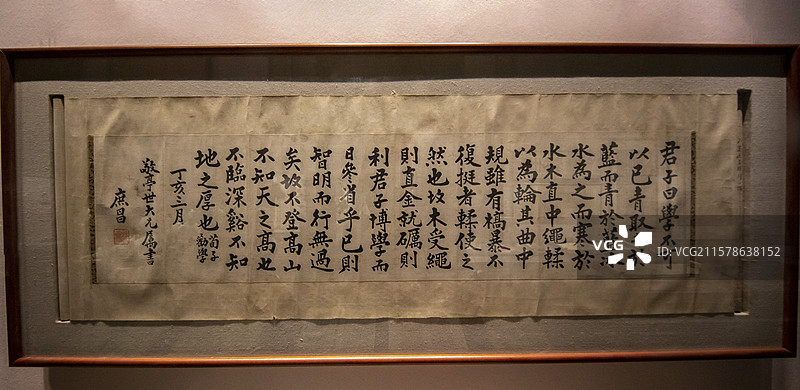 君子曰學不可
以已青取
藍而青於藍
水為之而寒於
水木直中繩輮
以為輪其曲中
規雖有槁暴不
復挺者輮使之
然也故木受繩
則直金就礪則
利君子博學而
日參省乎已則
智明而行無過
矣故不登高山
不知天之高也
不臨深谿不知
地之厚也 荀子勸學
丁亥三月
敬亭世大兄屬書
庶昌
VCG
VCG211578638152